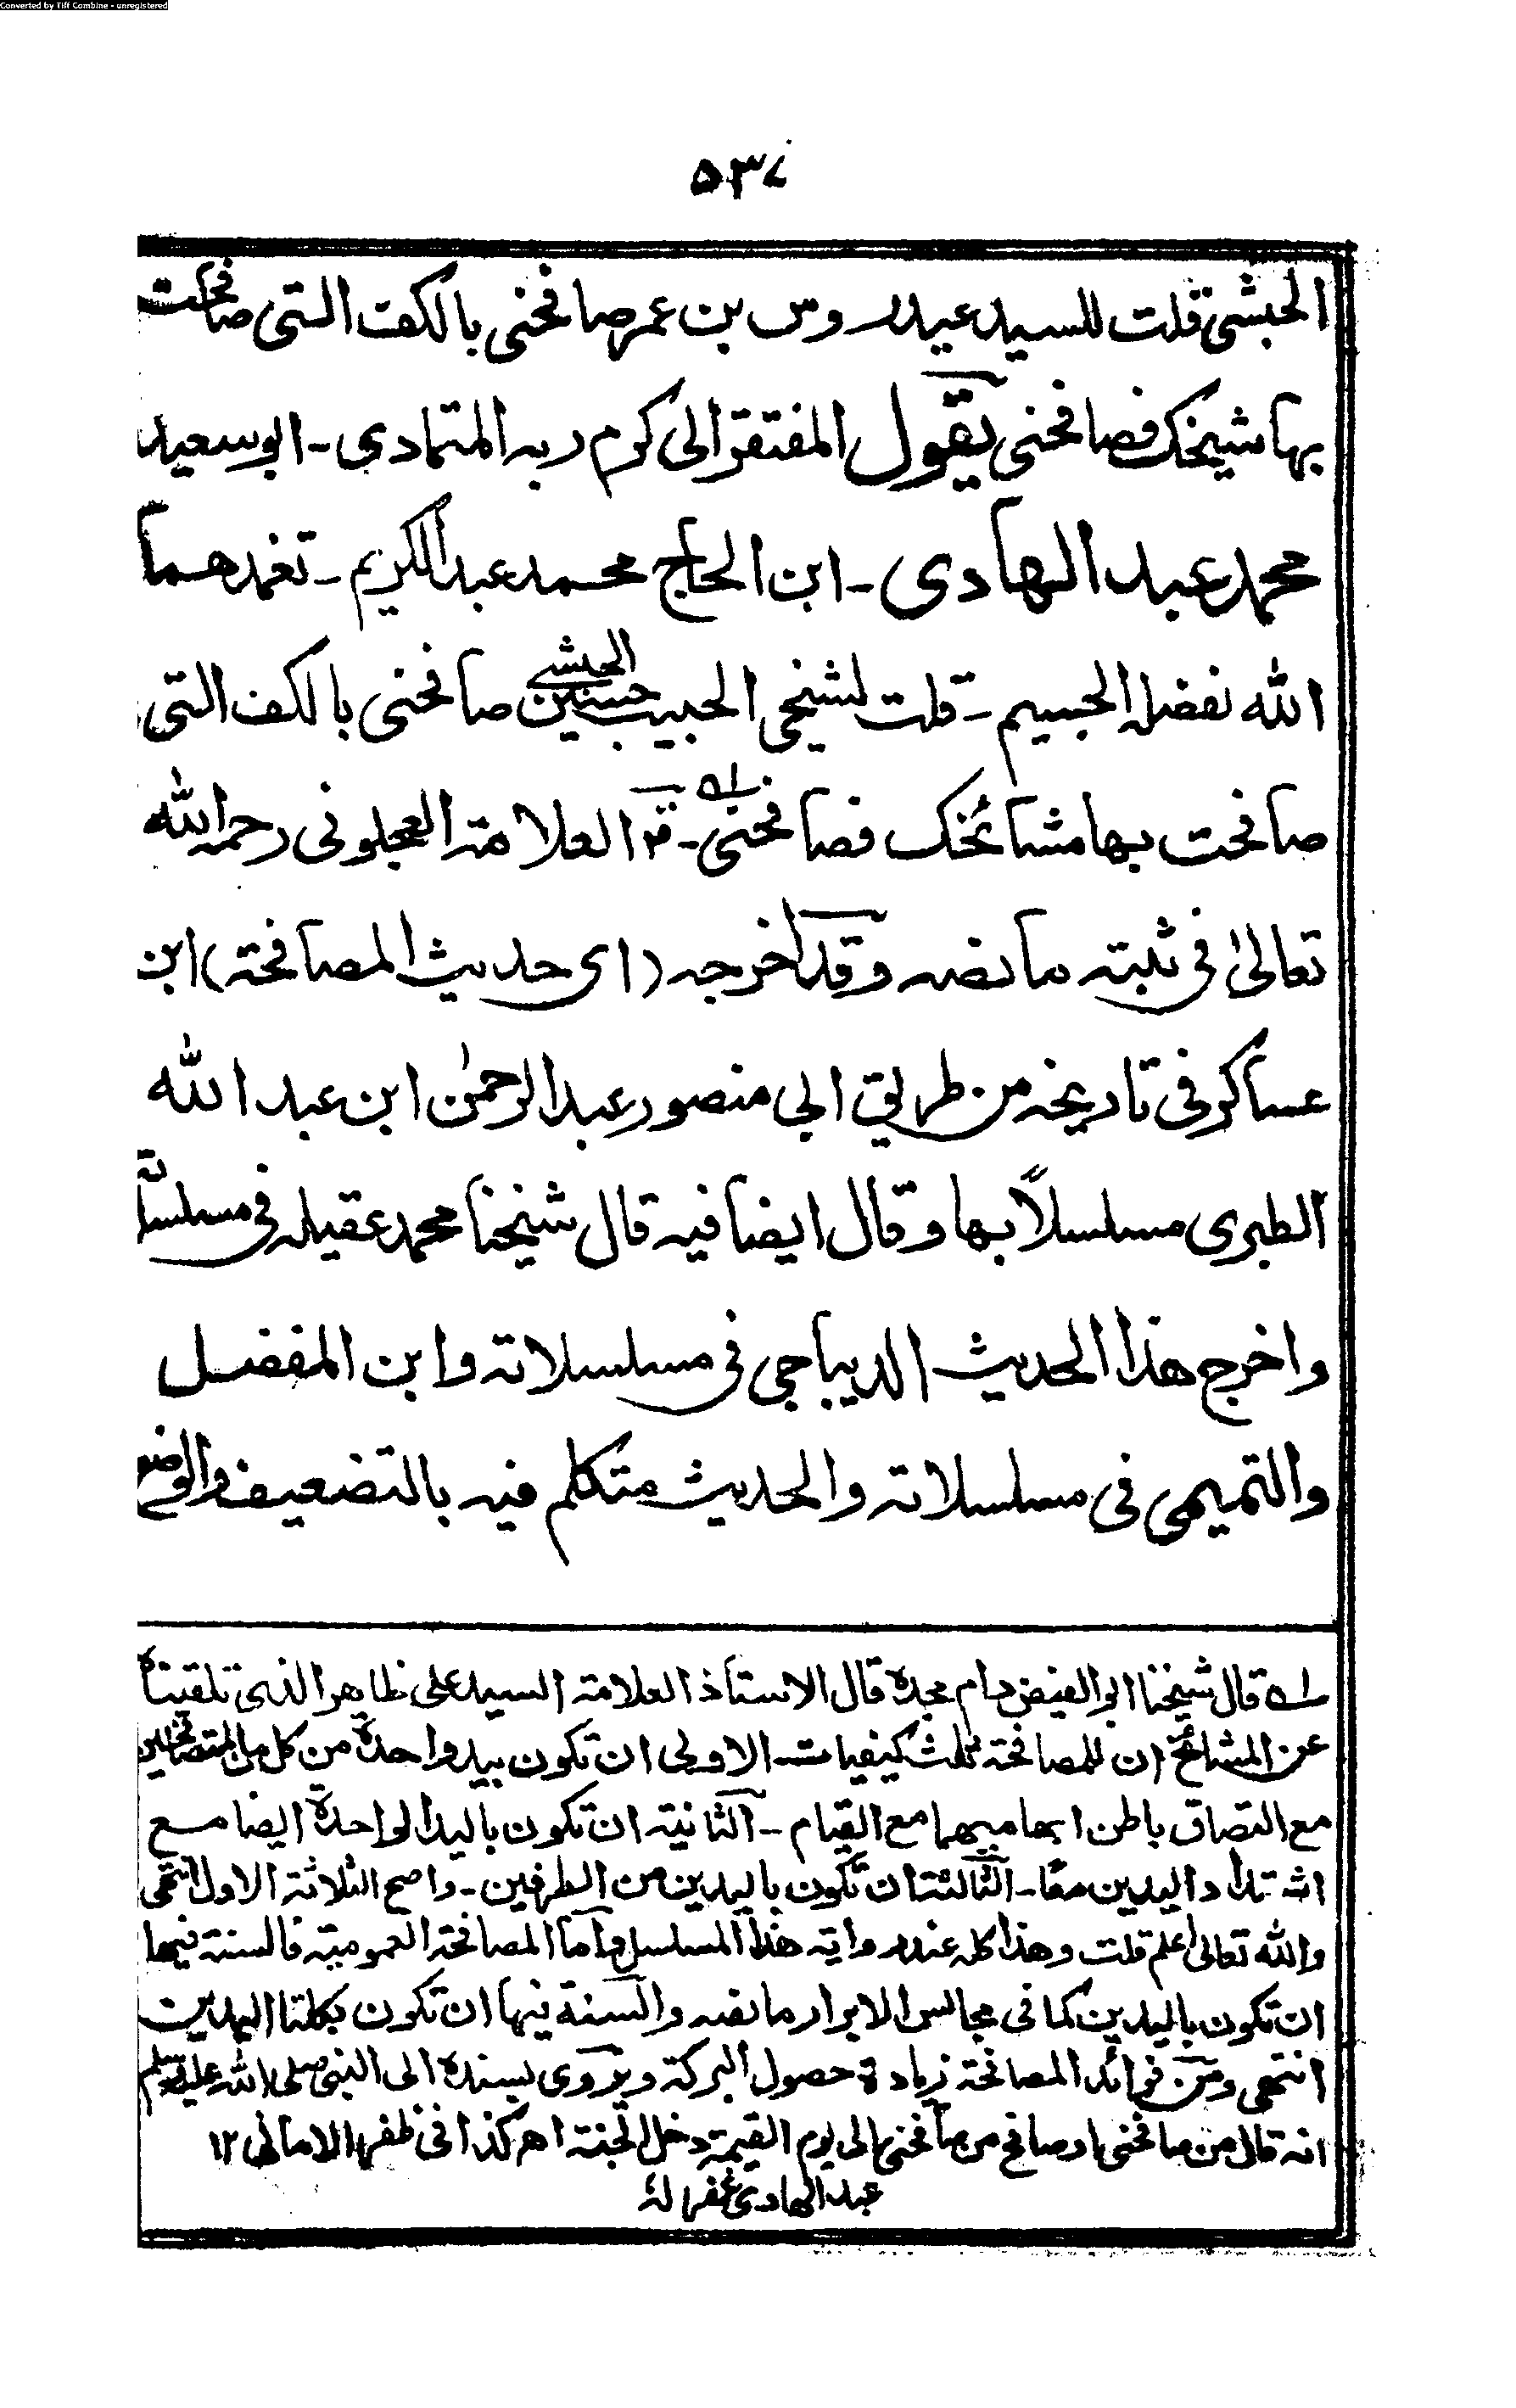 Converted by Tiff Combine - unregistered
٥٣٧
الحبشي قلت للسيد عيدروس بن عمر صافحني بالكف التي صافحت
بها شيخك فصافحني يقول المفتقر الى كرم ربه المتمادي - ابو سعيد
محمد عبد الهادي - ابن الحاج محمد عبد الكريم - تغمدهما
الله بفضله الجسيم - قلت لشيخي الحبيب حسين الحبشي صافحني بالكف التي
صافحت بها مشائخك فصافحني - العلامة العجلوني رحمه الله
تعالىٰ في ثبته ما نصه وقد اخرجه (اى حديث المصافحة) ابن
عساكر في تاريخه من طريق ابي منصور عبد الرحمٰن ابن عبد الله
الطبرى مسلسلاً بها وقال ايضا فيه قال شيخنا محمد عقيله في مسلسلاته
واخرج هذا الحديث الديباجي في مسلسلاته وابن المفضل
والتميمي في مسلسلاته والحديث متكلم فيه بالتضعيف والوضع
له قال شيخنا ابو الفيض دام مجده قال الاستاذ العلامة السيد على ظاهر الذى تلقيناه
عن المشائخ ان للمصافحة ثلث كيفيات - الاولى ان تكون بيد واحدة من كل من المتصافحين
مع التصاق باطن ابهاميهما مع القيام - الثانية ان تكون باليد الواحدة ايضا مع
اشتداد اليدين معًا - الثالثة ان تكون باليدين من الطرفين - واصح الثلاثة الاول انتهى
والله تعالى اعلم قلت وهذا كله عند رواية هذا المسلسل واما المصافحة العمومية فالسنة فيها
ان تكون باليدين كما في مجالس الابرار ما نصه والسنة فيها ان تكون بكلتا اليدين
انتهى ومن فوائد المصافحة زيادة حصول البركة ويروى بسنده الى النبي صلى الله عليه وسلم
انه قال من صافحني او صافح من صافحني الى يوم القيمة دخل الجنة اهـ كذا في ظفر الاماني ١٢
عبد الهادي غفر لهٗ